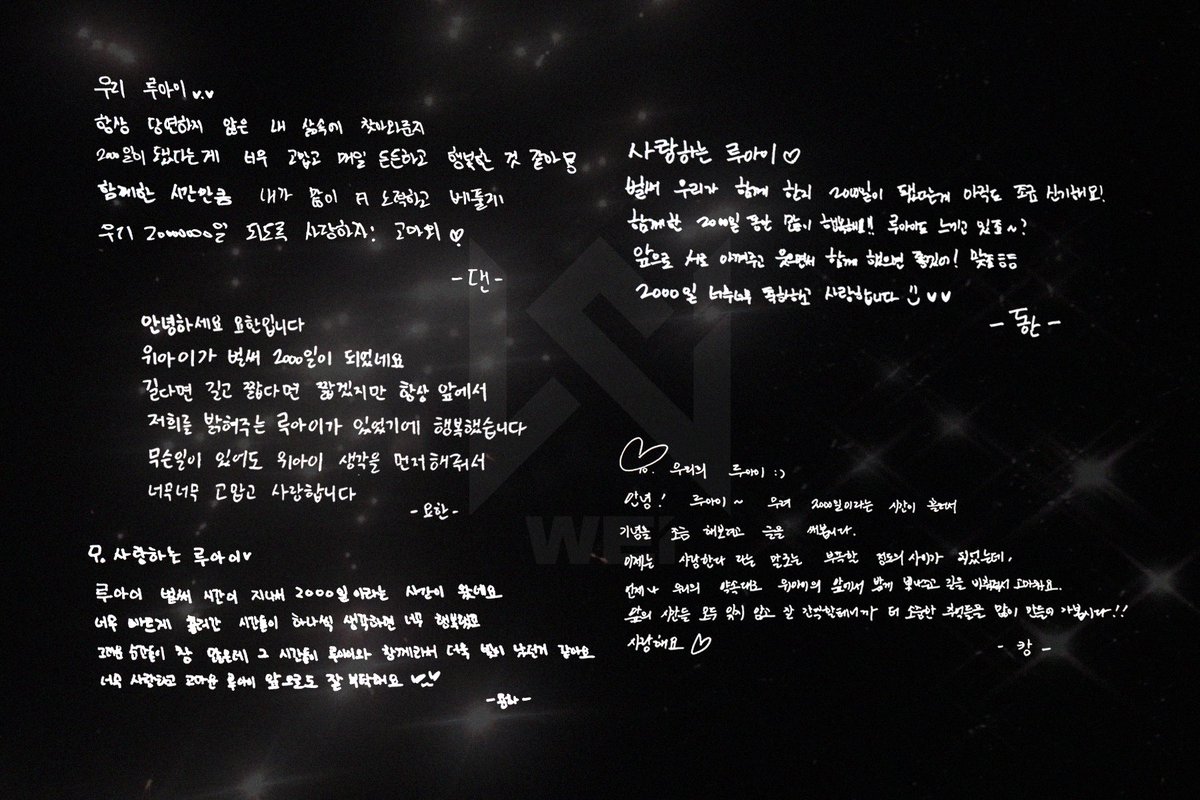 우리 루아이
항상 당연하지 않은 내 삶속에 찾아와준지
2000일이 됐다는게 너무 고맙고 매일 든든하고 행복한 것 같아
함께한 시간만큼 내가 많이 더 노력하고 베풀게
우리 20000000일 되도록 사랑하자! 고마워 ♡
-댄-
안녕하세요 요한입니다
위아이가 벌써 2000일이 되었네요
길다면 길고 짧다면 짧겠지만 항상 앞에서
저희를 밝혀주는 루아이가 있었기에 행복했습니다
무슨일이 있어도 위아이 생각을 먼저해줘서
너무너무 고맙고 사랑합니다
-요한-
To. 사랑하는 루아이♥
루아이 벌써 시간이 지나서 2000일이라는 시간이 왔네요
너무 빠르게 흘러간 시간들이 하나씩 생각하면 너무 행복했고
그 시간들이 루아이와 함께라서 더욱 빛이 났던거 같아요
너무 사랑하고 고마운 루아이 앞으로도 잘 부탁해요
-용하-
사랑하는 루아이♡
벌써 우리가 함께 한지 2000일이 됐다는게 아직도 조금 신기해요!
함께한 2000일 동안 많이 행복해!! 루아이도 느끼고 있죠~?
앞으로 서로 아껴주고 웃으면서 함께 했으면 좋겠어!
2000일 너무너무 축하하고 사랑합니다
-동한-
To. 우리의 루아이 :)
안녕! 루아이~ 우리 2000일이라는 시간이 흘러서
기념을 조금 해보려고 글을 써봅니다.
이제는 사랑한다 라는 말로는 부족한 정도의 사이가 되었는데,
언제나 우리의 약속대로 위아이의 앞에서 밝게 빛내주고 길을 비춰줘서 고마워요.
앞의 시간들 모두 잊지 않고 잘 간직할테니까 더 소중한 추억들을 많이 만들어 가봅시다!!
사랑해요 ♡
-캉-